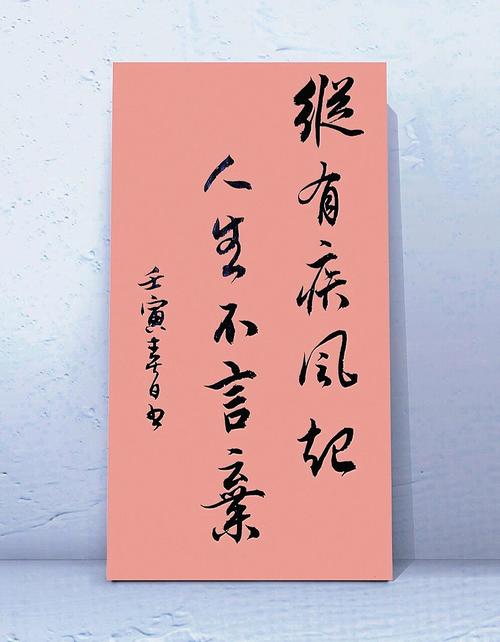 縱有疾風起
人生不言棄
壬寅春日书